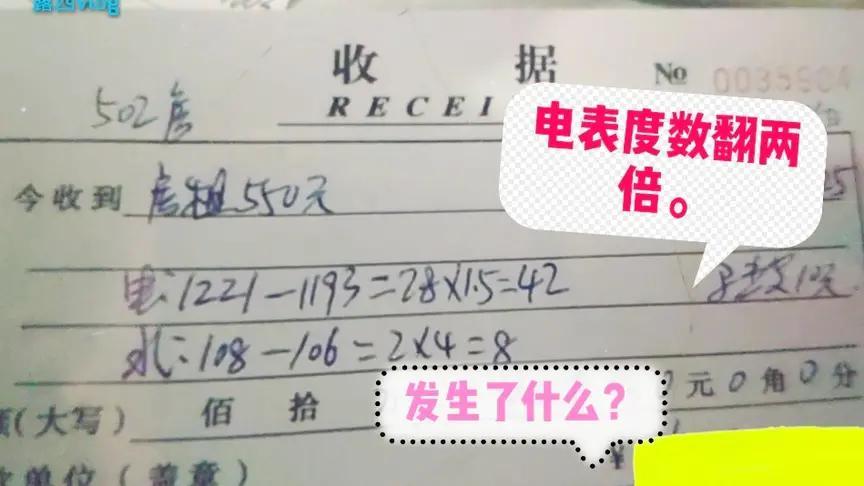 露西vlog
收 据
№ 0035504
502房
RECEI
电表度数翻两倍。
今收到 房租550元
电:1221-1193=28×1.5=42
水:108-106=2×4=8
发生了什么?
元0角0分
(大写) 佰 拾
¥
单位(盖章)